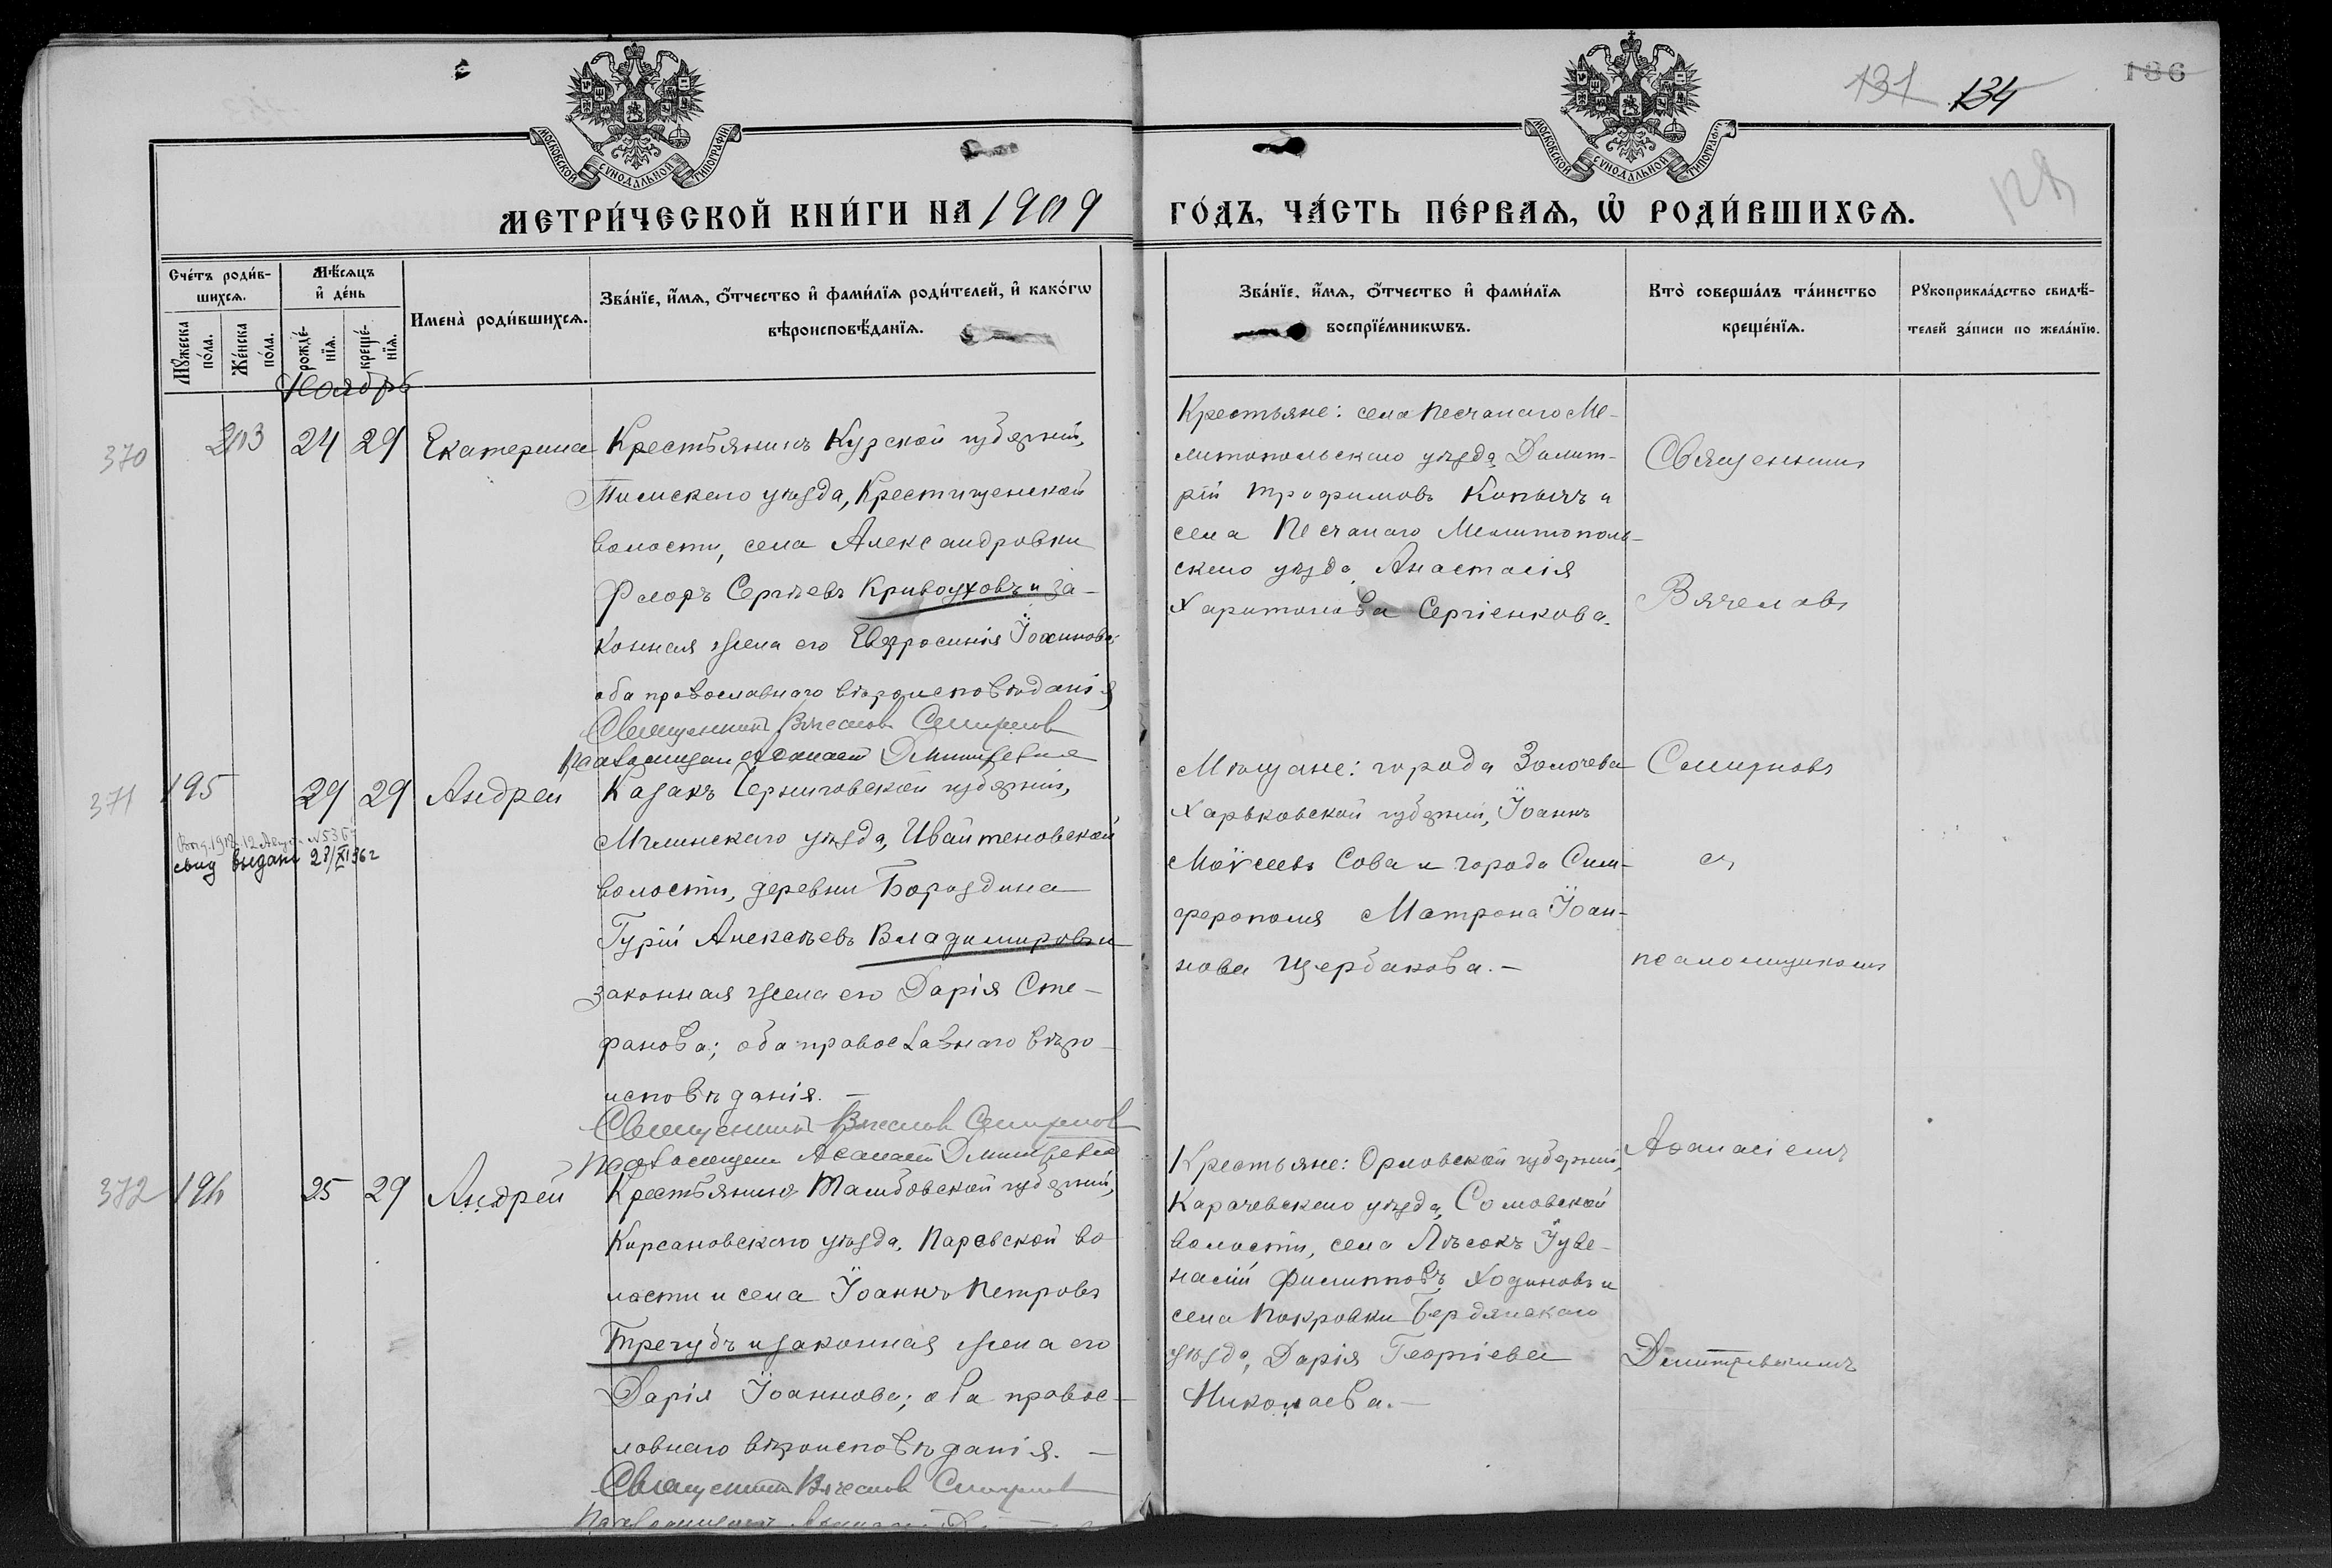 131 134 186
МОСКОВСКОЙ СѴНОДАЛЬНОЙ ТИПОГРАФІИ
МОСКОВСКОЙ СѴНОДАЛЬНОЙ ТИПОГРАФІИ
МЕТРИ́ЧЕСКОЙ КНИ́ГИ НА 1909
ГО́ДЪ, ЧА́СТЬ ПЕ́РВАѦ, Ѽ РОДИ́ВШИХСѦ.
Сче́тъ роди́в-
шихсѧ.
Мꙋ́жеска
по́ла.
Же́нска
по́ла.
Мѣ́сѧцъ
и҆ де́нь
рожде́-
нїѧ.
креще́-
нїѧ.
Имена̀ роди́вшихсѧ.
Зва́нїе, и҆́мѧ, ѻ҆́тчество и҆ фами́лїѧ роди́телей, и҆ како́гѡ
вѣроисповѣ́данїѧ.
Зва́нїе, и҆́мѧ, ѻ҆́тчество и҆ фами́лїѧ
воспрїе́мникѡвъ.
Кто̀ соверша́лъ та́инство
креще́нїѧ.
Рꙋкоприкла́дство свидѣ́-
телей за́писи по жела́нїю.
Ноябрь
370
203 24 29 Екатерина
Крестьянинъ Курской губерніи,
Тимскаго уѣзда, Крестищенской
волости, села Александровки
Флоръ Сергѣевъ Кривоуховъ и за-
конная жена его Евфросинія Іоаннова
оба православнаго вѣроисповѣданія
Священникъ Вячеслов Смирнов
Псаломщик Афанасий Дмитревич
Крестьяне: села Песчанаго Ме-
литопольскаго уѣзда, Димит-
рій Трофимовъ Копычъ и
села Песчанаго Мелитополь-
скаго уѣзда Анастасія
Харитонова Сергіенкова.
Священникъ
Вячеславъ
371
195 29 29 Андрей
свид выдано
Казакъ Черниговской губерніи,
Мглинскаго уѣзда, Ивайтеновской
волости, деревни Бороздина
Гурій Алексѣевъ Владимировъ и
законная жена его Дарія Сте-
фанова; оба православнаго вѣро-
исповѣданія. -
Священникъ Вячеслов Смирнов
Псаломщик Афанасий Дмитревич
Мѣщане: города Золочева
Харьковской губерніи, Іоаннъ
Моѵсеевъ Сова и города Сим-
ферополя Матрона Іоан-
нова Щербакова. -
Смирновъ
съ
псаломщикомъ
372
196 25 29 Андрей
Крестьянинъ Тамбовской губерніи,
Кирсановскаго уѣзда, Паревской во-
лости и села Іоаннъ Петровъ
Трегубъ и законная жена его
Дарія Іоаннова; оба правос-
лавнаго вѣроисповѣданія. -
Священникъ Вячеслов Смирнов
Крестьяне: Орловской губерніи,
Карачевскаго уѣзда, Сомовской
волости, села Лѣсокъ Іуве-
налій Филипповъ Ходиновъ и
села Покровки Бердянскаго
уѣзда, Дарія Георгіева
Николаева. -
Афанасіемъ
Димитревичемъ